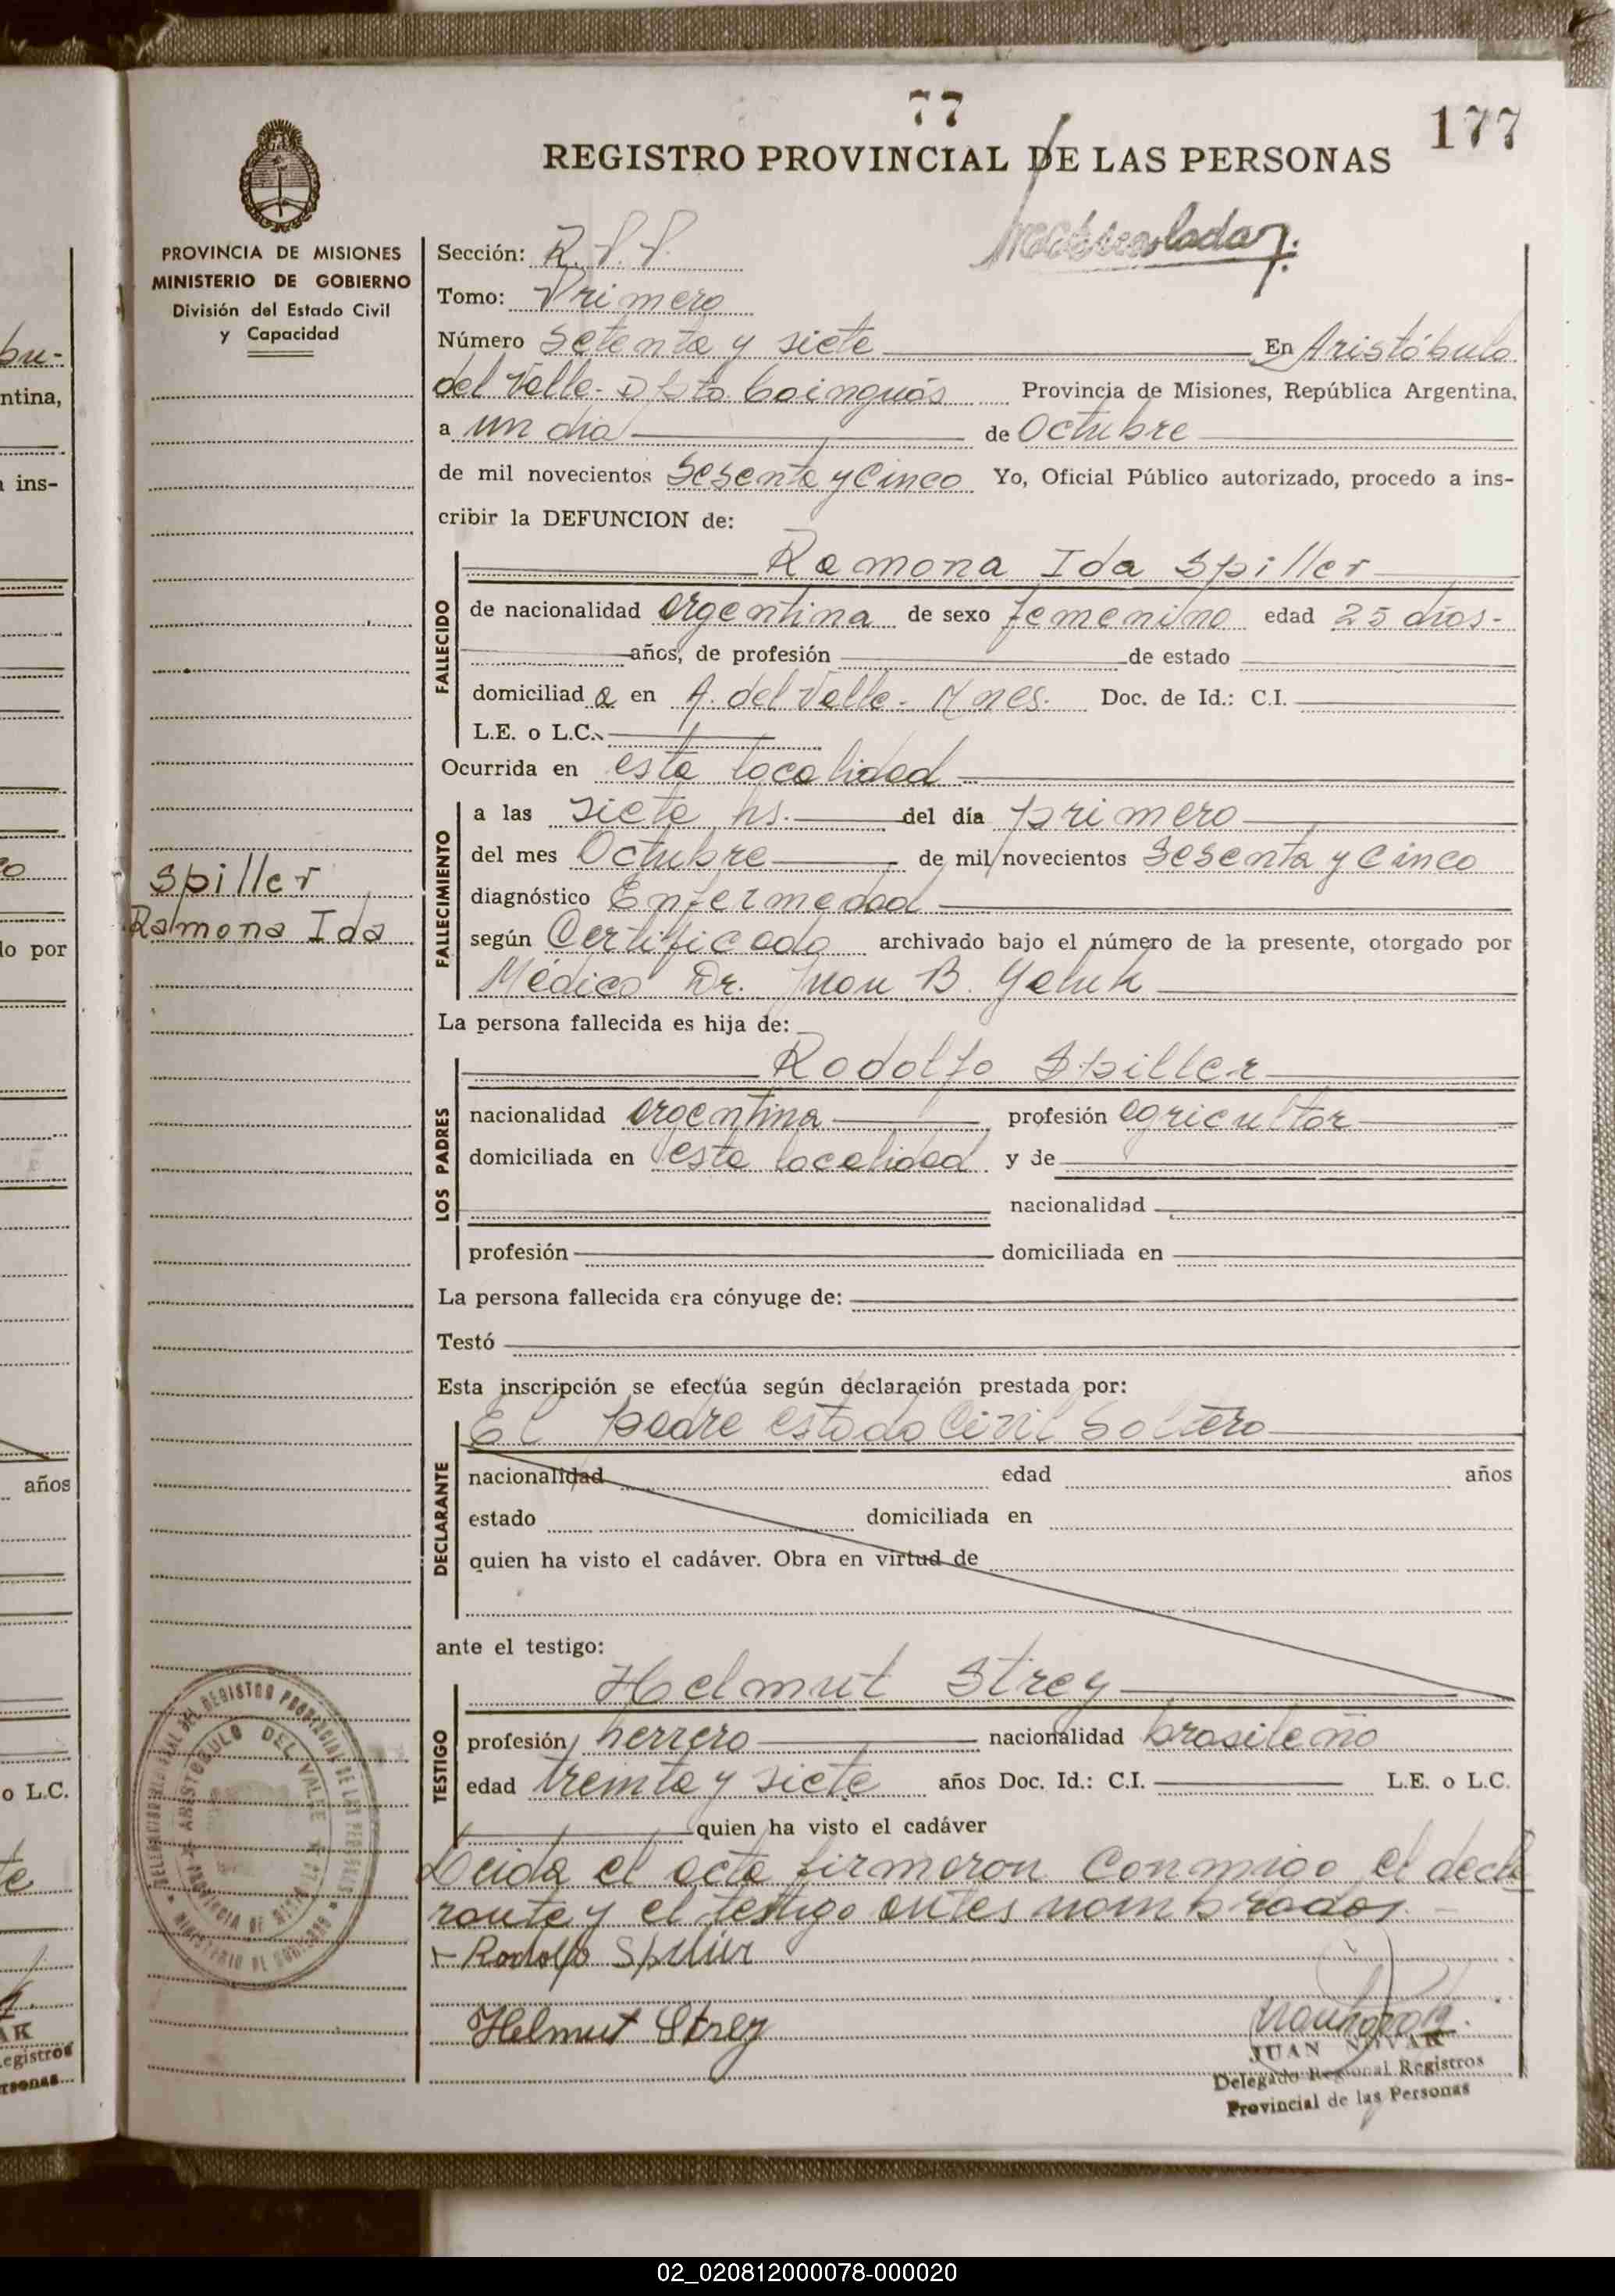 77
177
REGISTRO PROVINCIAL DE LAS PERSONAS
PROVINCIA DE MISIONES
MINISTERIO DE GOBIERNO
División del Estado Civil
y Capacidad
Spiller
Ramona Ida
Matriculada
Sección: R.P.P.
Tomo: Primero
Número Setenta y siete En Aristóbulo
del Valle - Dpto Cainguás Provincia de Misiones, República Argentina,
a un dia de Octubre
de mil novecientos Sesenta y Cinco Yo, Oficial Público autorizado, procedo a ins-
cribir la DEFUNCION de:
FALLECIDO
Ramona Ida Spiller
de nacionalidad argentina de sexo femenino edad 25 días-
años, de profesión de estado
domiciliad a en A. del Valle - Mnes. Doc. de Id.: C.I.
L.E. o L.C.
Ocurrida en esta localidad
FALLECIMIENTO
a las siete hs. del día primero
del mes Octubre de mil novecientos Sesenta y Cinco
diagnóstico Enfermedad
según Certificado archivado bajo el número de la presente, otorgado por
Médico Dr. Juan B.
La persona fallecida es hija de:
LOS PADRES
Rodolfo Spiller
nacionalidad argentina profesión agricultor
domiciliada en esta localidad y de
nacionalidad
profesión domiciliada en
La persona fallecida era cónyuge de:
Testó
Esta inscripción se efectúa según declaración prestada por:
DECLARANTE
El padre estado Civil Soltero
nacionalidad edad años
estado domiciliada en
quien ha visto el cadáver. Obra en virtud de
ante el testigo:
TESTIGO
Helmut Strey
profesión herrero nacionalidad brasileño
edad treinta y siete años Doc. Id.: C.I. L.E. o L.C.
quien ha visto el cadáver
Leida el acta firmaron conmigo el decla
rante y el testigo antes nombrados. -
Rodolfo Spiller
Helmut Strey
JUAN NOVAK
Delegado Regional Registros
Provincial de las Personas
ARISTOBULO DEL VALLE
02_020812000078-000020